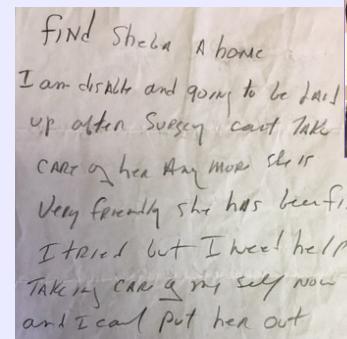 FiNd Sheba A home
I am disable and going to be laid
up after Surgey cant Take
CARE of her Any More she is
Very friendly she has been fi
I tried but I need help
TAKing CARe of my self Now
and I cant put her out